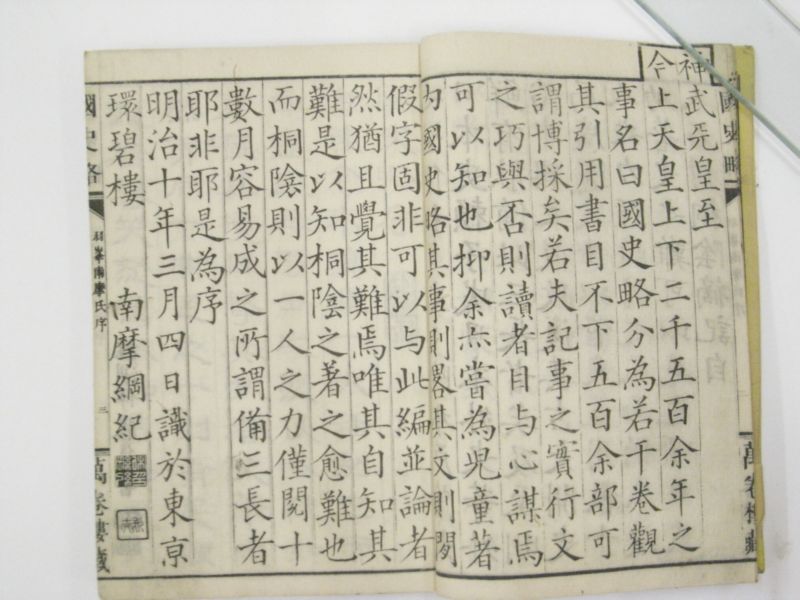 神武天皇至
今上天皇上下二千五百余年之
事名曰國史略分為若干卷觀
其引用書目不下五百余部可
謂博採矣若夫記事之實行文
之巧與否則讀者目与心謀焉
可以知也抑余亦嘗為児童著
内國史略其事則畧其文則間
假字固非可以与此編並論者
然猶且覺其難焉唯其自知其
難是以知桐陰之著之愈難也
而桐陰則以一人之力僅閱十
數月容易成之所謂備三長者
耶非耶是為序
明治十年三月四日識於東亰
環碧樓　南摩綱紀
國史略
羽峯南摩氏序
三
萬卷樓藏
國史略
萬卷樓藏